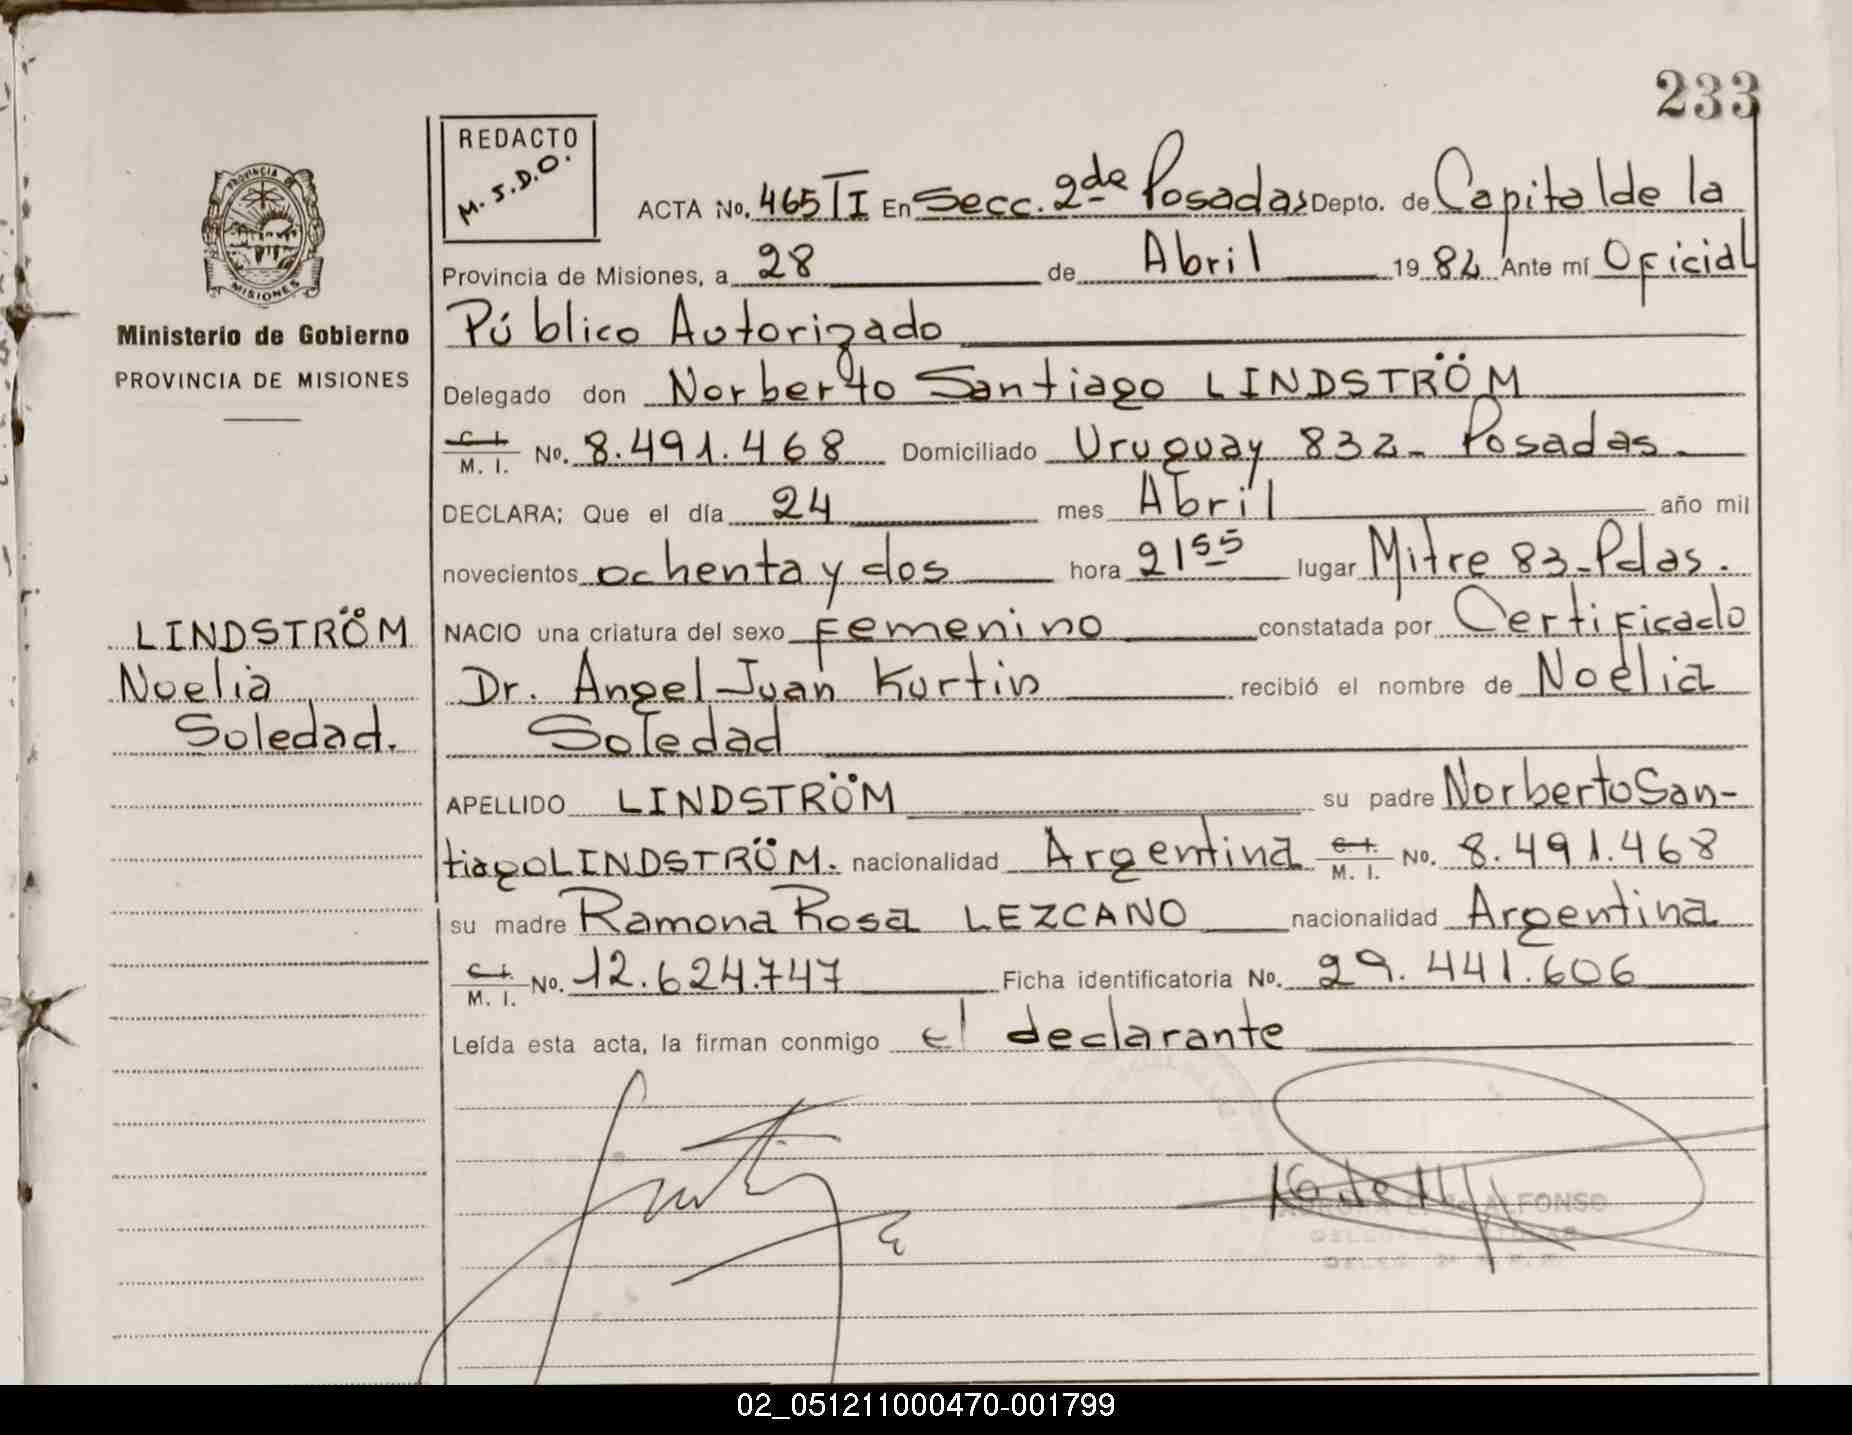 233
REDACTO
M.S.D.O.
ACTA No. 465 TI En Secc. 2da Posadas Depto. de Capital de la
PROVINCIA DE
MISIONES
Ministerio de Gobierno
PROVINCIA DE MISIONES
Provincia de Misiones, a 28 de Abril 1982 Ante mí Oficial
Público Autorizado
Delegado don Norberto Santiago LINDSTRÖM
C. I.
M. I. No. 8.491.468 Domiciliado Uruguay 832- Posadas.
DECLARA; Que el día 24 mes Abril año mil
novecientos ochenta y dos hora 21 55 lugar Mitre 83-Pdas.
LINDSTRÖM
Noelia
Soledad.
NACIO una criatura del sexo femenino constatada por Certificado
Dr. Angel Juan Kurtin recibió el nombre de Noelia
Soledad
APELLIDO LINDSTRÖM su padre Norberto San-
tiago LINDSTRÖM. nacionalidad Argentina C. I.
M. I. No. 8.491.468
su madre Ramona Rosa LEZCANO nacionalidad Argentina
C. I.
M. I. No. 12.624.747 Ficha identificatoria No. 29.441.606
Leída esta acta, la firman conmigo el declarante
ALFONSO
02_051211000470-001799